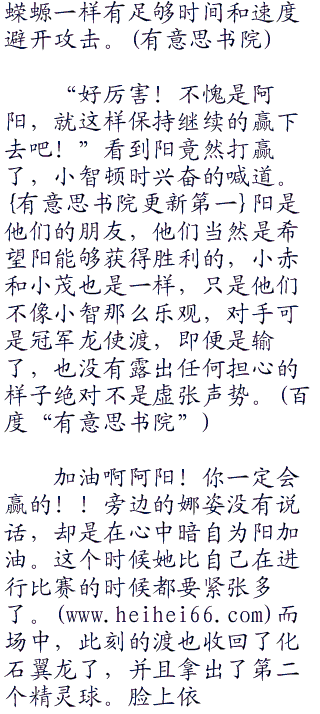 蝾螈一样有足够时间和速度
避开攻击。(有意思书院)
“好厉害！不愧是阿
阳，就这样保持继续的赢下
去吧！”看到阳竟然打赢
了，小智顿时兴奋的喊道。
{有意思书院更新第一}阳是
他们的朋友，他们当然是希
望阳能够获得胜利的，小赤
和小茂也是一样，只是他们
不像小智那么乐观，对手可
是冠军龙使渡，即便是输
了，也没有露出任何担心的
样子绝对不是虚张声势。(百
度“有意思书院”)
加油啊阿阳！你一定会
赢的！！旁边的娜姿没有说
话，却是在心中暗自为阳加
油。这个时候她比自己在进
行比赛的时候都要紧张多
了。(www.heihei66.com)而
场中，此刻的渡也收回了化
石翼龙了，并且拿出了第二
个精灵球。脸上依